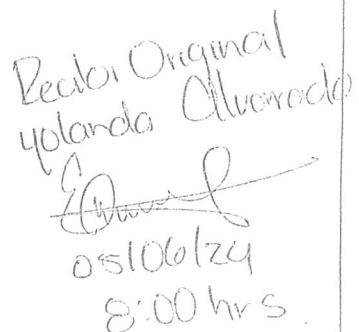 Recibi Original
yolanda Alvarado
05/06/24
8:00 hrs